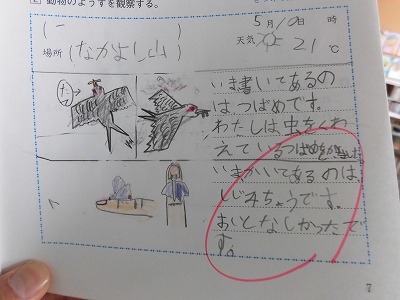 動物のようすを観察する。
5月10日 時
場所(なかよし山)
天気 21℃
いま書いてあるの
はつばめです。
わたしは虫をくわ
えているつばめをかきました
いまかいてあるのは、
しじみちょうです。
おとなしかったで
す。
7